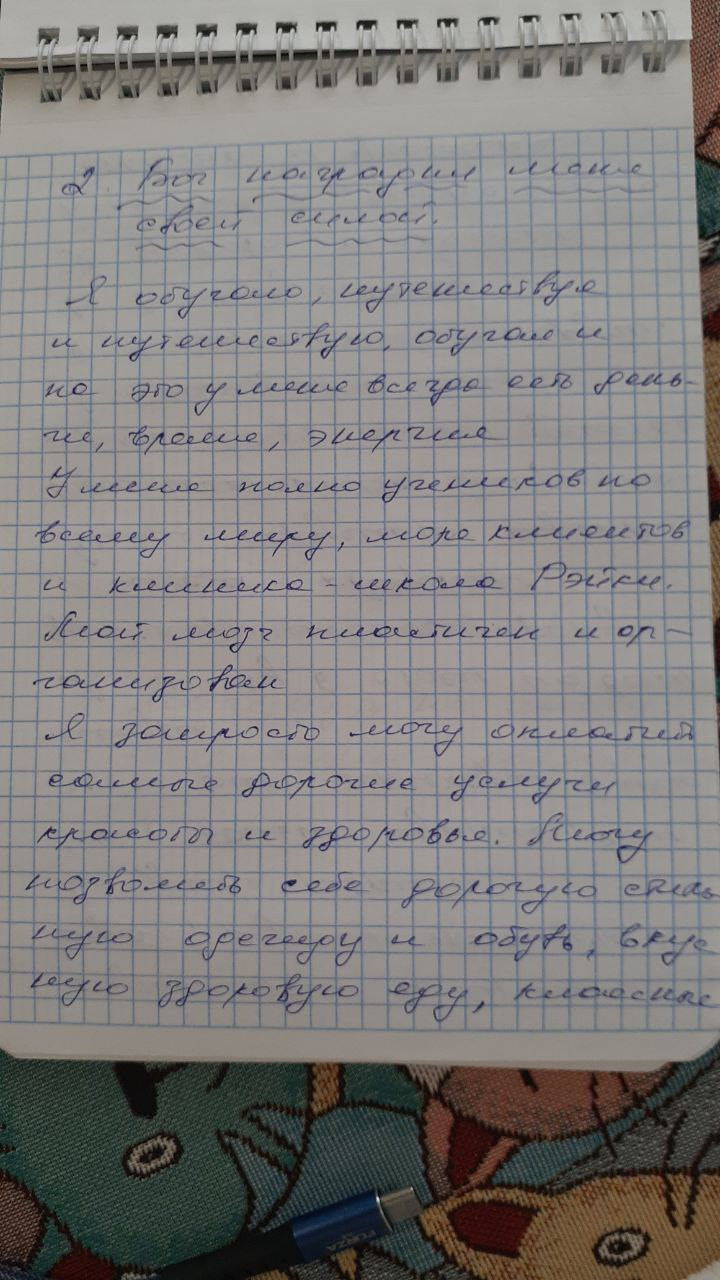 2. Бог наградил меня
своей силой.
Я обучаю, путешествуя
и путешествую, обучая и
на это у меня всегда есть день-
ги, время, энергия
У меня полно учеников по
всему миру, море клиентов
и клиника - школа Рэйки.
Мой мозг пластичен и ор-
ганизован
Я запросто могу оплатить
самые дорогие услуги
красоты и здоровья. Могу
позволить себе дорогую стиль
ную одежду и обувь, вкус
ную здоровую еду, классные